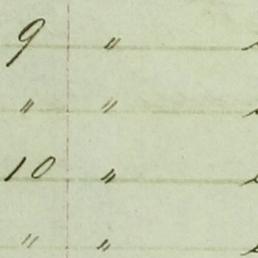 9 "
" "
10 "
" "